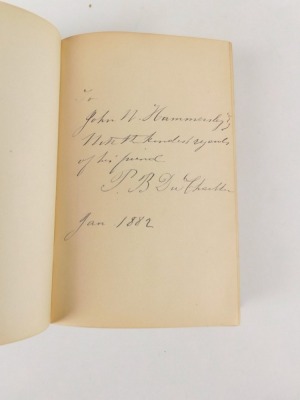 To
John N. Hammersley
With the kindest regards
of his friend
P. B Du Chaillu
Jan 1882